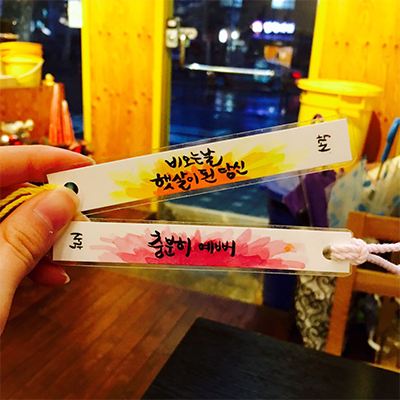 비오는날
햇살이 된 당신
충분히 예뻐